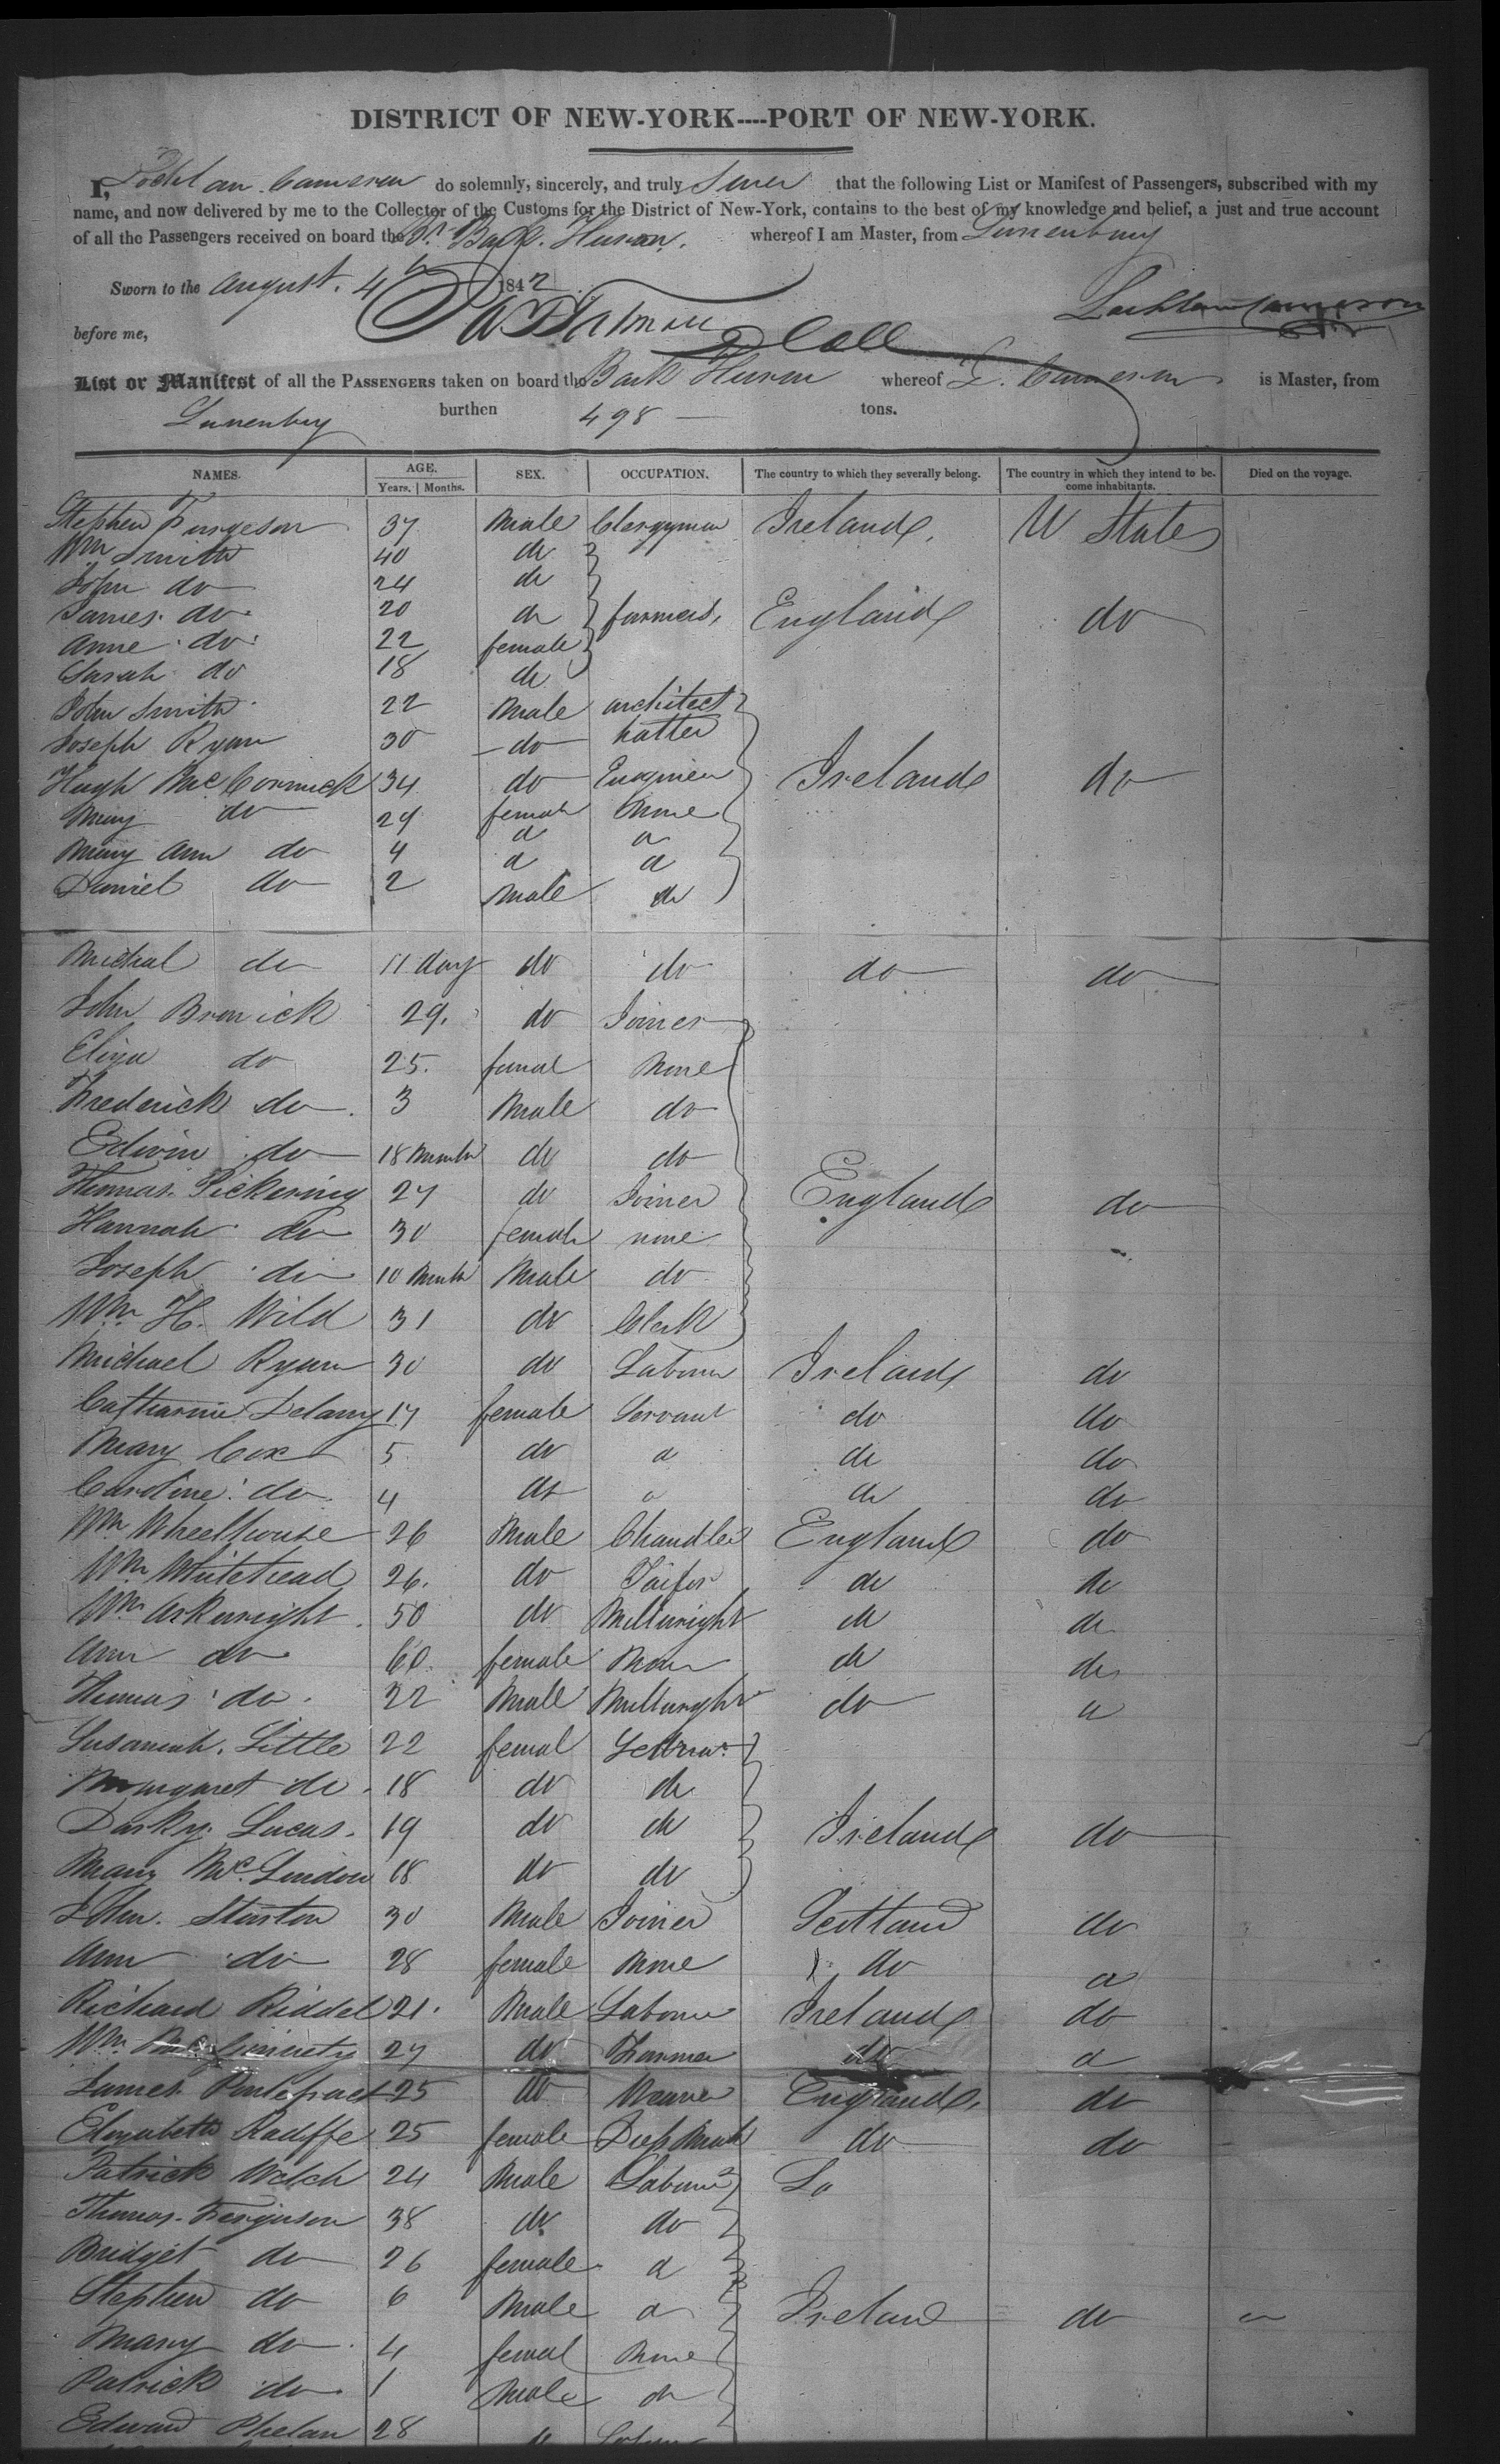 DISTRICT OF NEW-YORK----PORT OF NEW-YORK.
I, Lochlan Cameron do solemnly, sincerely, and truly swear that the following List or Manifest of Passengers, subscribed with my
name, and now delivered by me to the Collector of the Customs for the District of New-York, contains to the best of my knowledge and belief, a just and true account
of all the Passengers received on board the Br. Bark. Huron. whereof I am Master, from Lunenburg
Sworn to the august. 4th 1842 Lochlan Cameron
before me,
List or Manifest of all the PASSENGERS taken on board the Bark Huron whereof L. Cameron is Master, from
Lunenburg burthen 498 tons.
NAMES. AGE. SEX. OCCUPATION. The country to which they severally belong. The country in which they intend to be- Died on the voyage.
Years. Months. come inhabitants.
Stephen Furgeson 37 Male Clergyman Ireland. U States
Wm Smith 40 do
John do 24 do
James. do. 20 do farmers, England do
Anne do 22 female
Sarah do 18 do
John Smith 22 Male architect
Joseph Ryan 30 do hatter
Hugh McCormick 34 do Engineer Ireland do
Mary do 29 female None
Mary Ann do 4 d d
Daniel do 2 Male do
Michal do 11 day do do do do
John Bronick 29. do Joiner
Eliza do 25. femal None
Frederick do 3 Male do
Edwin do 18 Months do do
Thomas. Pickering 27 do Joiner England do
Hannah do 30 female none
Joseph do 10 Month Male do
Wm. H. Wild 31 do Clerk
Michael Ryan 30 do Labour Ireland do
Catharine Delany 17 female Servant do do
Mary Cox 5 do d do do
Caroline do 4 do do do
Wm Wheelhouse 26 Male Chandler England do
Wm Whitehead 26. do Tailor do do
Wm. Arkwright 50 do Millwright do do
Ann do 60. female None do do
Thomas do. 22 Male Millwright do d
Susannah. Little 22 femal
Margaret do 18 do do
Lucas. 19 do do Ireland do
Mary Mc. 18 do do
John. Stanton 30 Male Joiner Scotland do
Ann do 28 female None do d
Richard Riddel 21. Male Labour Ireland do
Wm. McGinnety 27 do Farmer do d
James Pontefract 25 do Weaver England. do
Elizabeth Radffe 25 female do do
Patrick Welch 24 Male Labour
Thomas. Ferguson 38 do do
Bridget do 26 female d
Stephen do 6 Male d Ireland do
Mary do 4 femal None
Patrick do 1 Male do
Edward Phelan 28